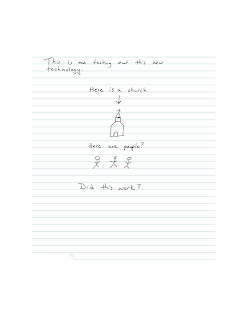 This is me testing out this new
technology.
Here is a church
Here are people?
Did this work?